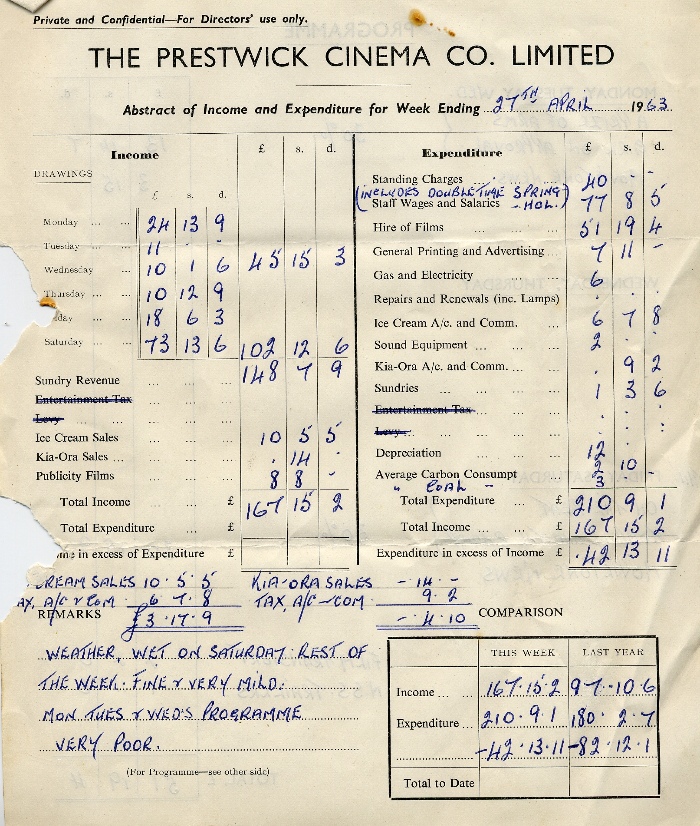 Private and Confidential—For Directors' use only.
THE PRESTWICK CINEMA CO. LIMITED
Abstract of Income and Expenditure for Week Ending 27TH APRIL 1963.
Income £ s. d.
DRAWINGS
£ s. d.
Monday ... ... 24 13 9
Tuesday ... ... 11 - -
Wednesday ... ... 10 1 6 45 15 3
Thursday ... ... 10 12 9
day ... ... 18 6 3
Saturday ... ... 73 13 6 102 12 6
148 7 9
Sundry Revenue ... ... ...
Entertainment Tax ... ...
Levy ... ... ...
Ice Cream Sales ... ... 10 5 5
Kia-Ora Sales ... ... ... . 14 -
Publicity Films ... ... 8 8 -
Total Income ... £ 167 15 2
Total Expenditure ... £
me in excess of Expenditure £
Expenditure £ s. d.
Standing Charges ... ... ... 40 - -
(INCLUDES DOUBLE TIME SPRING HOL.)
Staff Wages and Salaries 77 8 5
Hire of Films ... ... ... 51 19 4
General Printing and Advertising ... 7 11 -
Gas and Electricity ... ... 6 . .
Repairs and Renewals (inc. Lamps) . . .
Ice Cream A/c. and Comm. ... 6 7 8
Sound Equipment ... ... ... 2 . .
Kia-Ora A/c. and Comm. ... . 9 2
Sundries ... ... ... 1 3 6
Entertainment Tax ... ...
Levy ... ... ...
Depreciation ... ... ... 12 . .
Average Carbon Consumpt 2 10 -
" COAL - 3
Total Expenditure £ 210 9 1
Total Income ... £ 167 15 2
Expenditure in excess of Income £ .42 13 11
CREAM SALES 10 . 5 . 5 KIA-ORA SALES - . 14 . -
AX, A/C & COM 6 . 7 . 8 TAX, A/C - COM 9 . 2
REMARKS £3 . 17 . 9 - . 4 . 10
WEATHER, WET ON SATURDAY. REST OF
THE WEEK. FINE & VERY MILD.
MON TUES & WED'S PROGRAMME
VERY POOR.
(For Programme—see other side)
COMPARISON
THIS WEEK LAST YEAR
Income ... ... 167.15.2 97.10.6
Expenditure ... 210.9.1 180.2.7
-42.13.11 -82.12.1
Total to Date